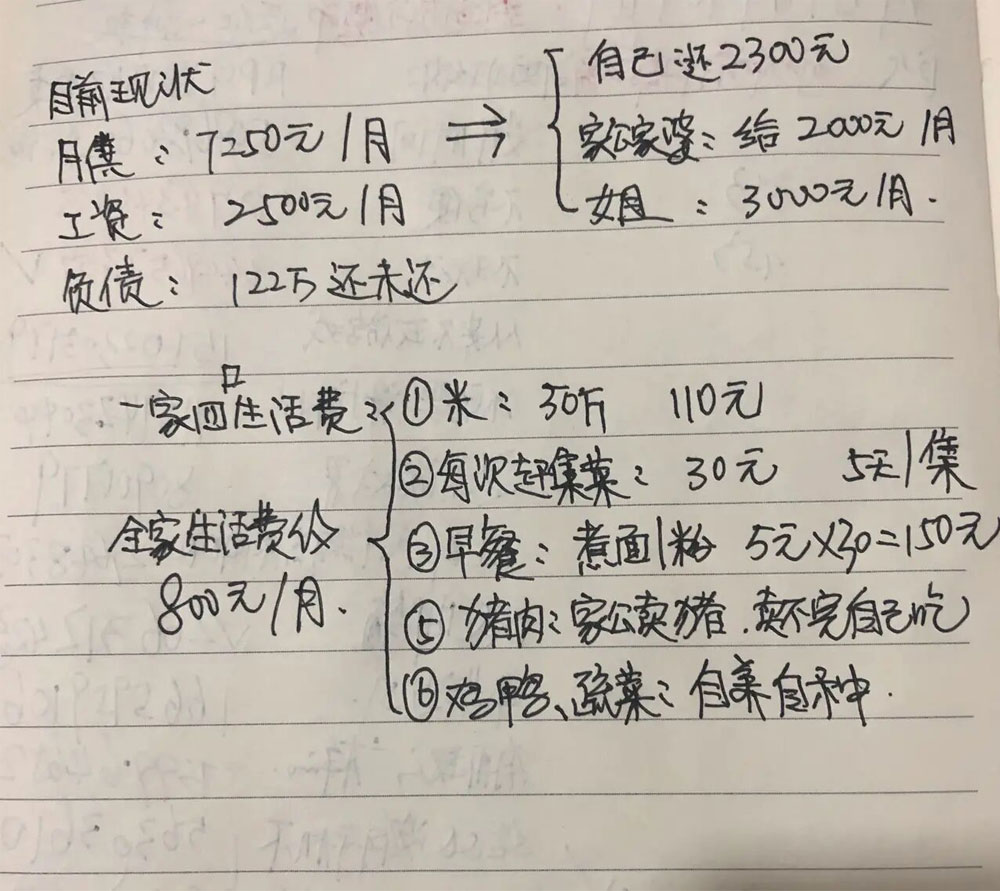 目前现状
月供：7250元/月 ⇒
工资：2500元/月
负债：122万还未还
自己还2300元
家公家婆：给2000元/月
姐：3000元/月.
一家四口生活费：
全家生活费约
800元/月.
①米：30斤 110元
②每次赶集菜：30元 5天/集
③早餐：煮面/粉 5元×30=150元
⑤猪肉：家公卖猪.卖不完自己吃
⑥鸡鸭、蔬菜：自养自种.